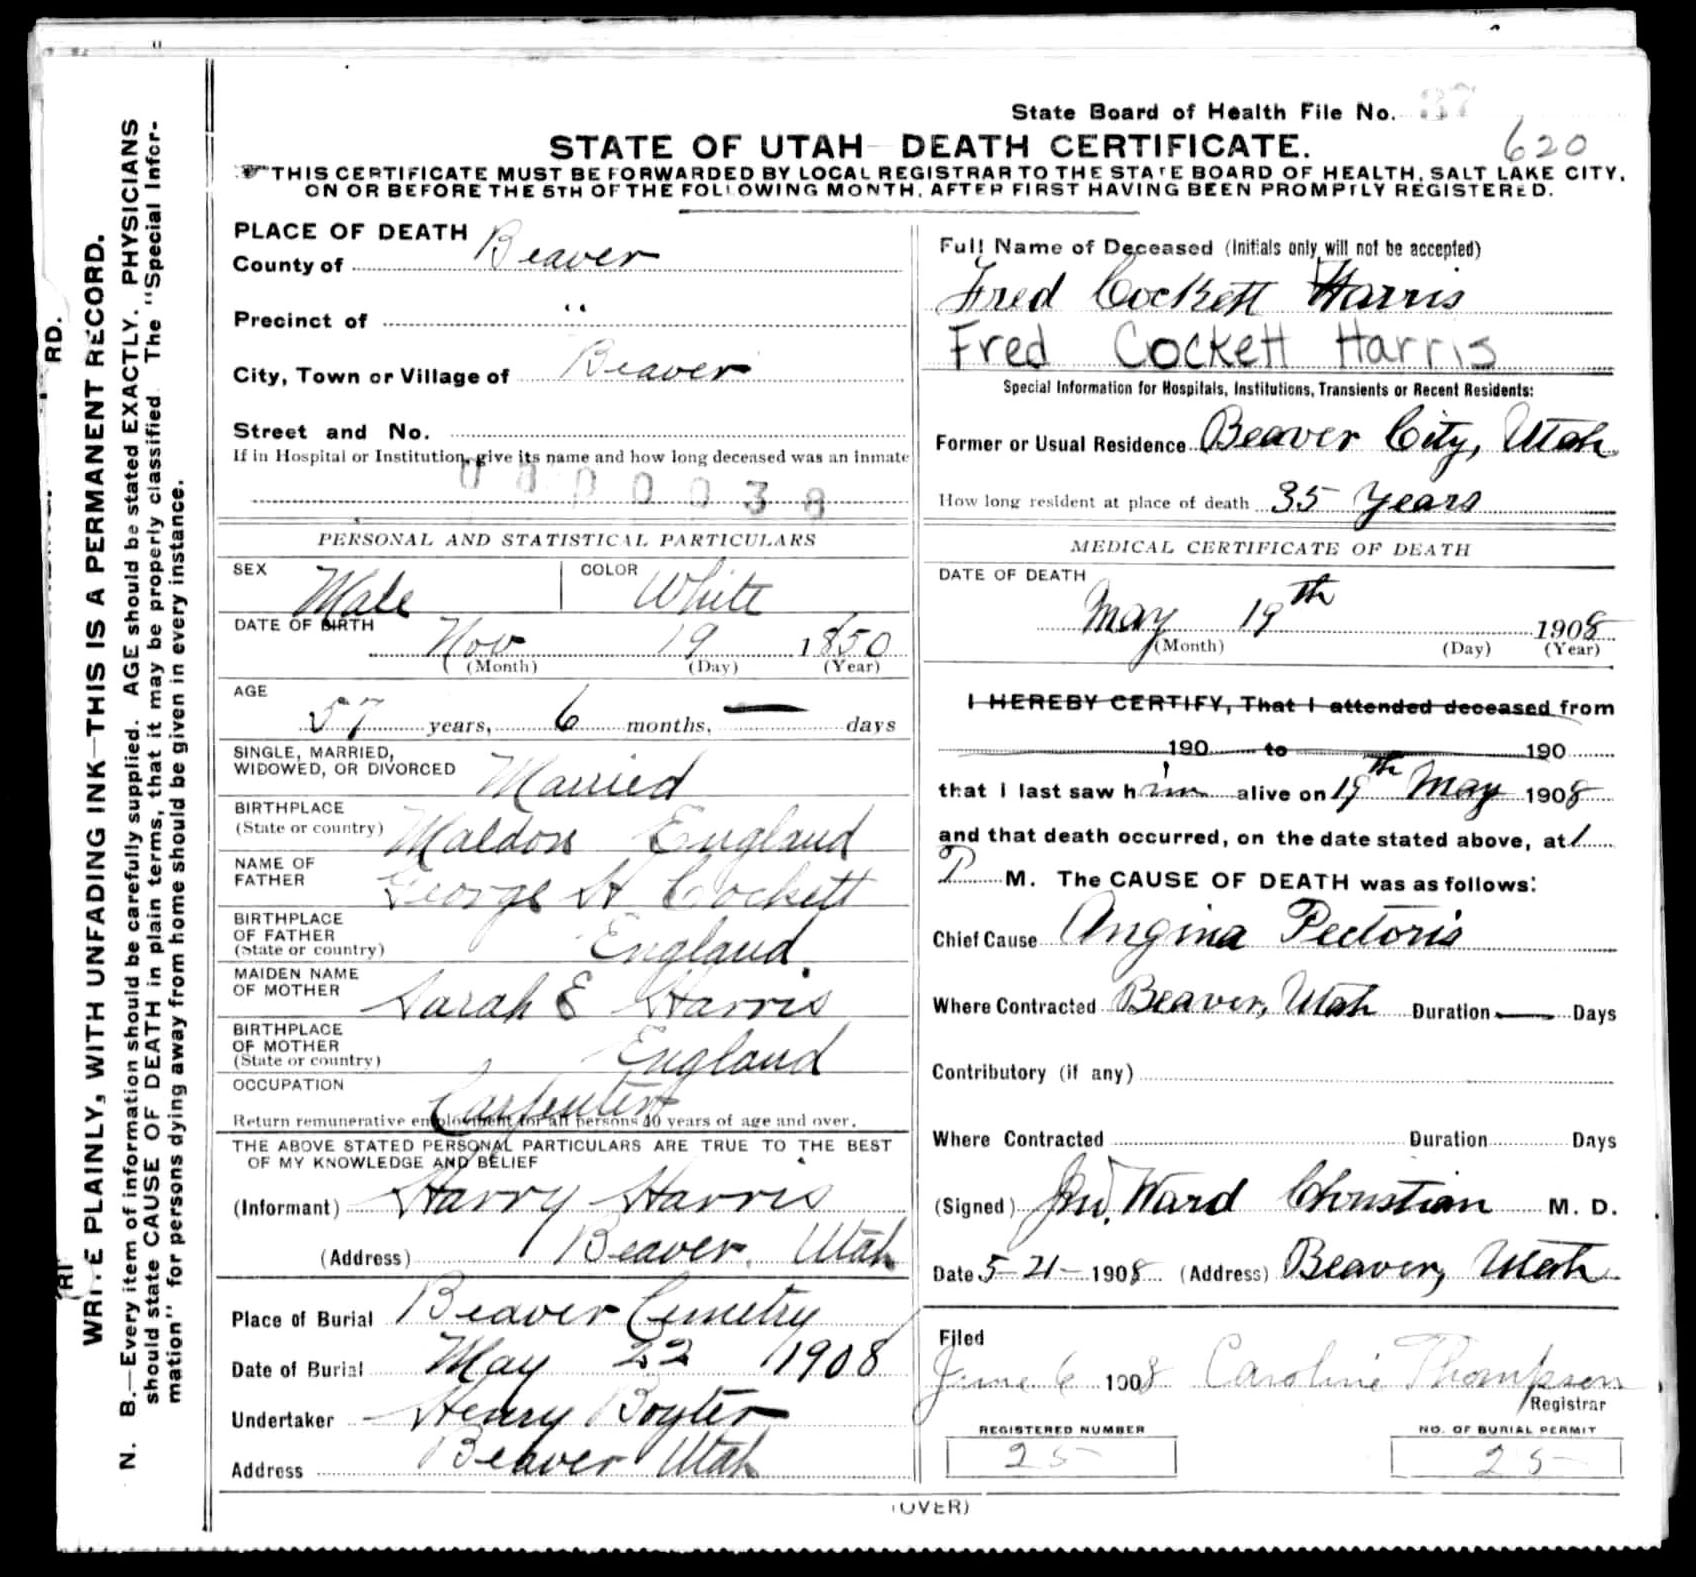 State Board of Health File No. 37
620
STATE OF UTAH—DEATH CERTIFICATE.
THIS CERTIFICATE MUST BE FORWARDED BY LOCAL REGISTRAR TO THE STATE BOARD OF HEALTH, SALT LAKE CITY,
ON OR BEFORE THE 5TH OF THE FOLLOWING MONTH, AFTER FIRST HAVING BEEN PROMPTLY REGISTERED.
WRITE PLAINLY, WITH UNFADING INK—THIS IS A PERMANENT RECORD.
N. B.—Every item of information should be carefully supplied. AGE should be stated EXACTLY. PHYSICIANS
should state CAUSE OF DEATH in plain terms, that it may be properly classified. The "Special Infor-
mation" for persons dying away from home should be given in every instance.
RD.
PLACE OF DEATH
County of Beaver
Precinct of "
City, Town or Village of Beaver
Street and No.
If in Hospital or Institution, give its name and how long deceased was an inmate
0 0 0 0 0 3 8
PERSONAL AND STATISTICAL PARTICULARS
SEX Male COLOR White
DATE OF BIRTH
Nov 19 1850
(Month) (Day) (Year)
AGE
57 years, 6 months, — days
SINGLE, MARRIED,
WIDOWED, OR DIVORCED Married
BIRTHPLACE
(State or country) Maldon England
NAME OF
FATHER George H Cockett
BIRTHPLACE
OF FATHER
(State or country) England.
MAIDEN NAME
OF MOTHER Sarah E Harris
BIRTHPLACE
OF MOTHER
(State or country) England
OCCUPATION
Carpenter
Return remunerative employment for all persons 10 years of age and over.
THE ABOVE STATED PERSONAL PARTICULARS ARE TRUE TO THE BEST
OF MY KNOWLEDGE AND BELIEF
(Informant) Harry Harris
(Address) Beaver, Utah
Place of Burial Beaver Cemetry
Date of Burial May 22 1908
Undertaker Henry Boyter
Address Beaver Utah
Full Name of Deceased (Initials only will not be accepted)
Fred Cockett Harris
Fred Cockett Harris
Special Information for Hospitals, Institutions, Transients or Recent Residents:
Former or Usual Residence Beaver City, Utah
How long resident at place of death 35 years
MEDICAL CERTIFICATE OF DEATH
DATE OF DEATH
May 19th 1908
(Month) (Day) (Year)
I HEREBY CERTIFY, That I attended deceased from
190 to 190
that I last saw him alive on 19th May 1908
and that death occurred, on the date stated above, at 1
P M. The CAUSE OF DEATH was as follows:
Chief Cause Angina Pectoris
Where Contracted Beaver, Utah Duration — Days
Contributory (if any)
Where Contracted Duration Days
(Signed) Jno. Ward Christian M. D.
Date 5-21- 1908 (Address) Beaver, Utah
Filed
June 6 1908 Caroline Thompson
Registrar
REGISTERED NUMBER NO. OF BURIAL PERMIT
25 25
(OVER)